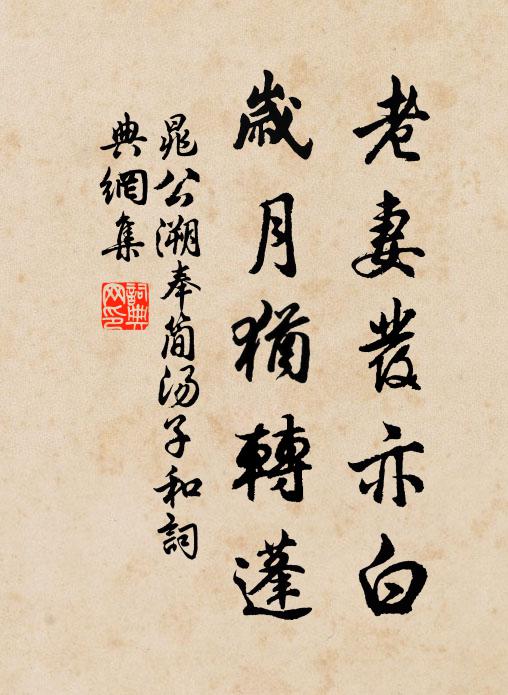 老妻發亦白
歲月猶轉蓬
晁公溯奉簡汤子和詞
典網集
詞典网印